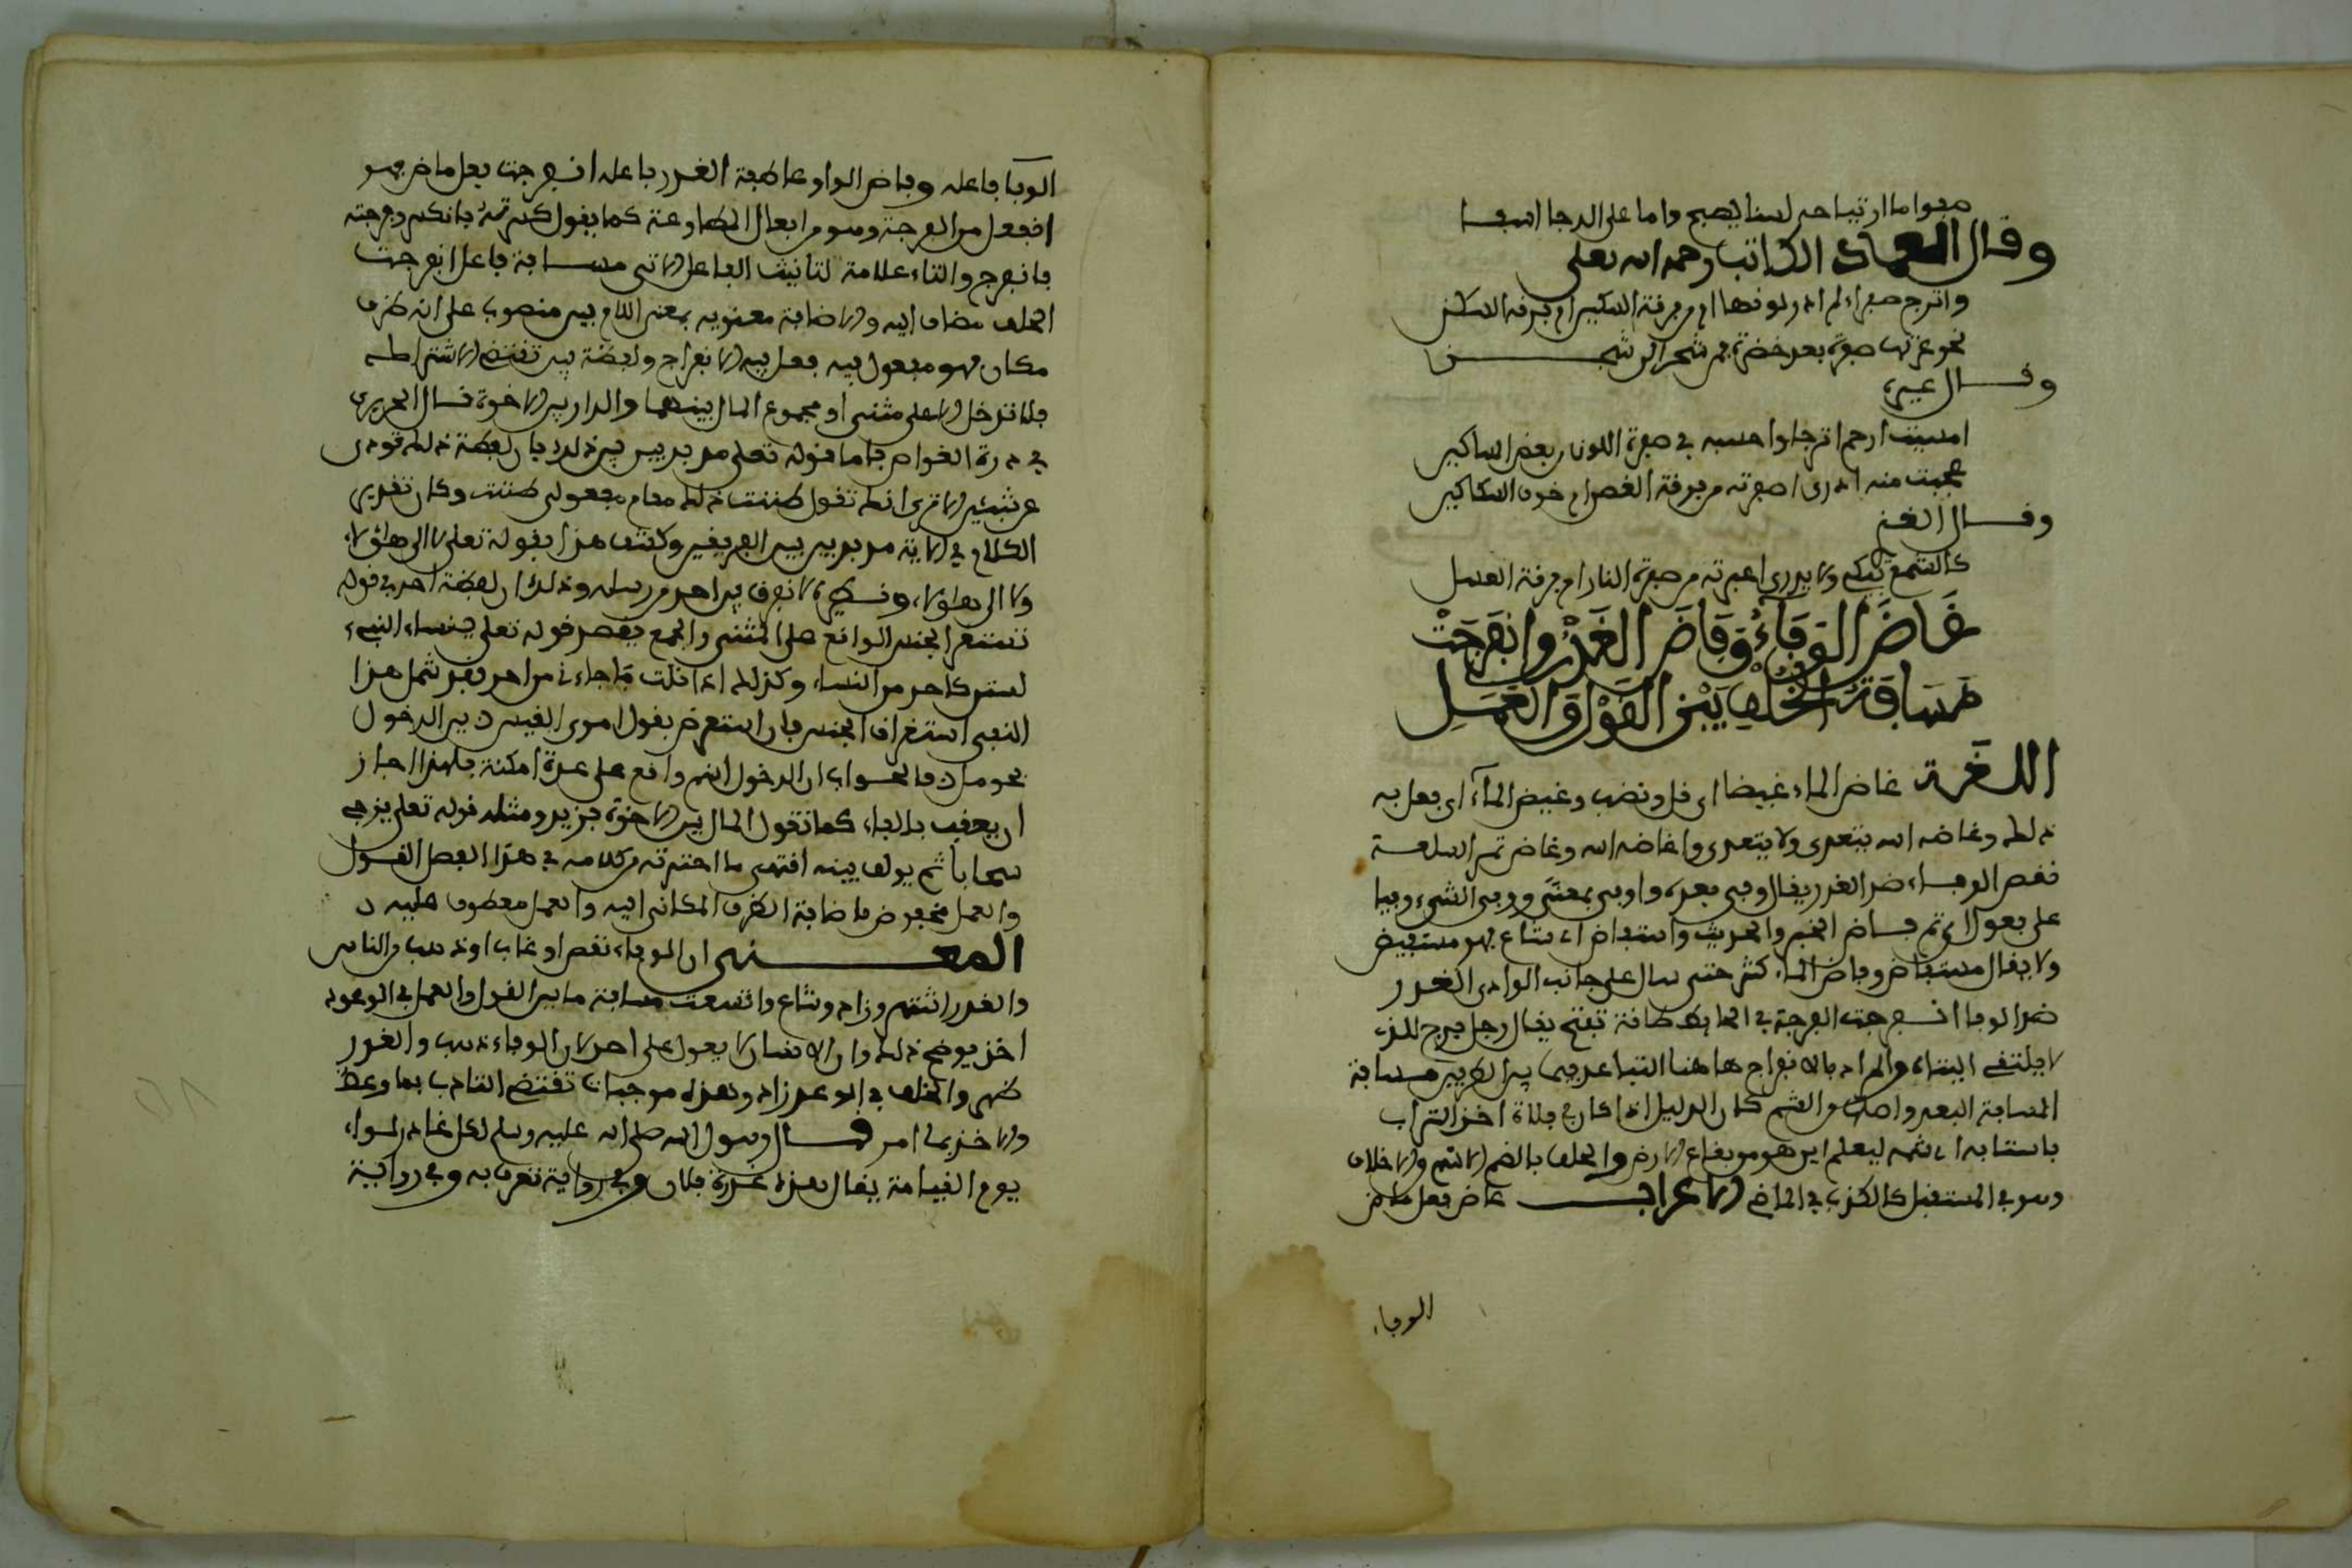 وقال العماد الكاتب رحمه الله تعلى
واترج صفراء لم ادر لونها امن فرقة السكين ام فرقة السكن
بحق عرتها صفرة بعد خضرة فمن شجر الى شجن
وقال غيره
امسيت ارحم اترجا واحسبه في صفرة اللون من بعض المساكين
عجبت منه ما ادرى اصفرته من فرقة الغصن ام خوف السكاكين
وقال الغزى
كالشمع يبكى ولا يدرى اعبرته من صفرة النار ام فرقة العسل
غَاضَ الوَفَاءُ وَفَاضَ الغَدْرُ وانفَرَجَتْ
مَسَافَةُ الخُلْفِ بَيْنَ القَوْلِ وَالعَمَلِ
اللغة غاض الماء غيضا اى قل ونضب وغيض الماء اى فعل به
ذلك وغاضه الله يتعدى ولا يتعدى واغاضه الله وغاض ثمن السلعة
نقص الوفاء ضد الغدر يقال وفى بعهده واوفى بمعنى ووفى الشىء وفيا
على فعول اى تم فاض الخبر والحديث واستفاض اى شاع فهو مستفيض
ولا يقال مستفاض وفاض الماء كثر حتى سال على جانب الوادى الغدر
ضد الوفا انفرجت الفرجة في الحائط طاقة تفتح يقال رجل فرج للذى
لا يلتقى اليتاه والمراد بالانفراج هاهنا التباعد فيما بين الطرفين مسافة
المسافة البعد واصلها من الشم كان الدليل اذا كان في فلاة اخذ التراب
فاستافه اى شمه ليعلم اين هو من بقاع الارض والخلف بالضم الاسم من الاخلاف
وهو في المستقبل كالكذب في الماضى الاعراب غاض فعل ماض
الوفاء
الوفا فاعله وفاض الواو عاطفة الغدر فاعله انفرجت فعل ماض فهو
انفعل من الفرجة وهو من افعال المطاوعة كما يقول كسرته فانكسر وفرجته
فانفرج والتاء علامة لتانيث الفاعل الاتى مسافة فاعل انفرجت
الخلف مضاف اليه والاضافة معنوية بمعنى اللام بين منصوب على انه ظرف
مكان فهو مفعول فيه فعل فيه الانفراج ولفظة بين تقتضى الاشتراك
فلا تدخل الا على مثنى او مجموع المال بينهما والدار بين الاخوة قال الحريرى
في درة الغواص فاما قوله تعلى مذبذبين بين ذلك فان لفظة ذلك تودى
عن شيئين الا ترى انك تقول ظننت ذلك مقام مفعولى ظننت وكان تقدير
الكلام في الاية مذبذبين بين الفريقين وكشف هذا بقوله تعلى لا الى هؤلاء
ولا الى هؤلاء ونظيره لا نفرق بين احد من رسله وذلك ان لفظة احد في قوله
تستغرق الجنس الواقع على المثنى والجمع يعضد قوله تعلى ينساء النبىء
لستن كاحد من النساء وكذلك اذا قلت ما جاءنى من احد فقد شمل هذا
النفى استغراق الجنس فان استعرض بقول امرى القيس بين الدخول
فحومل فالجواب ان الدخول اسم واقع على عدة امكنة فلهذا جاز
ان يعقب بالفاء كما تقول المال بين الاخوة فزيد ومثله قوله تعلى يزجى
سحابا ثم يولف بينه انتهى ما اخترته من كلامه في هذا الفصل القول
والعمل مخفوض باضافة الظرف المكانى اليه والعمل معطوف عليه
المعنى ان الوفاء نقص او غاب او ذهب من الناس
والغدر انتشر وزاد وشاع واتسعت مسافة ما بين القول والعمل في الوعود
اخذ يوضح ذلك وان الانسان لا يعول على احد لان الوفاء ذهب والغدر
ظهر والخلف في الوعد زاد وهذه موجبات تقتضى التادب بما وعظ
والاخذ بما امر قال رسول الله صلى الله عليه وسلم لكل غادر لواء
يوم القيامة يقال هذه غدرة فلان وفى رواية تعرف به وفى رواية